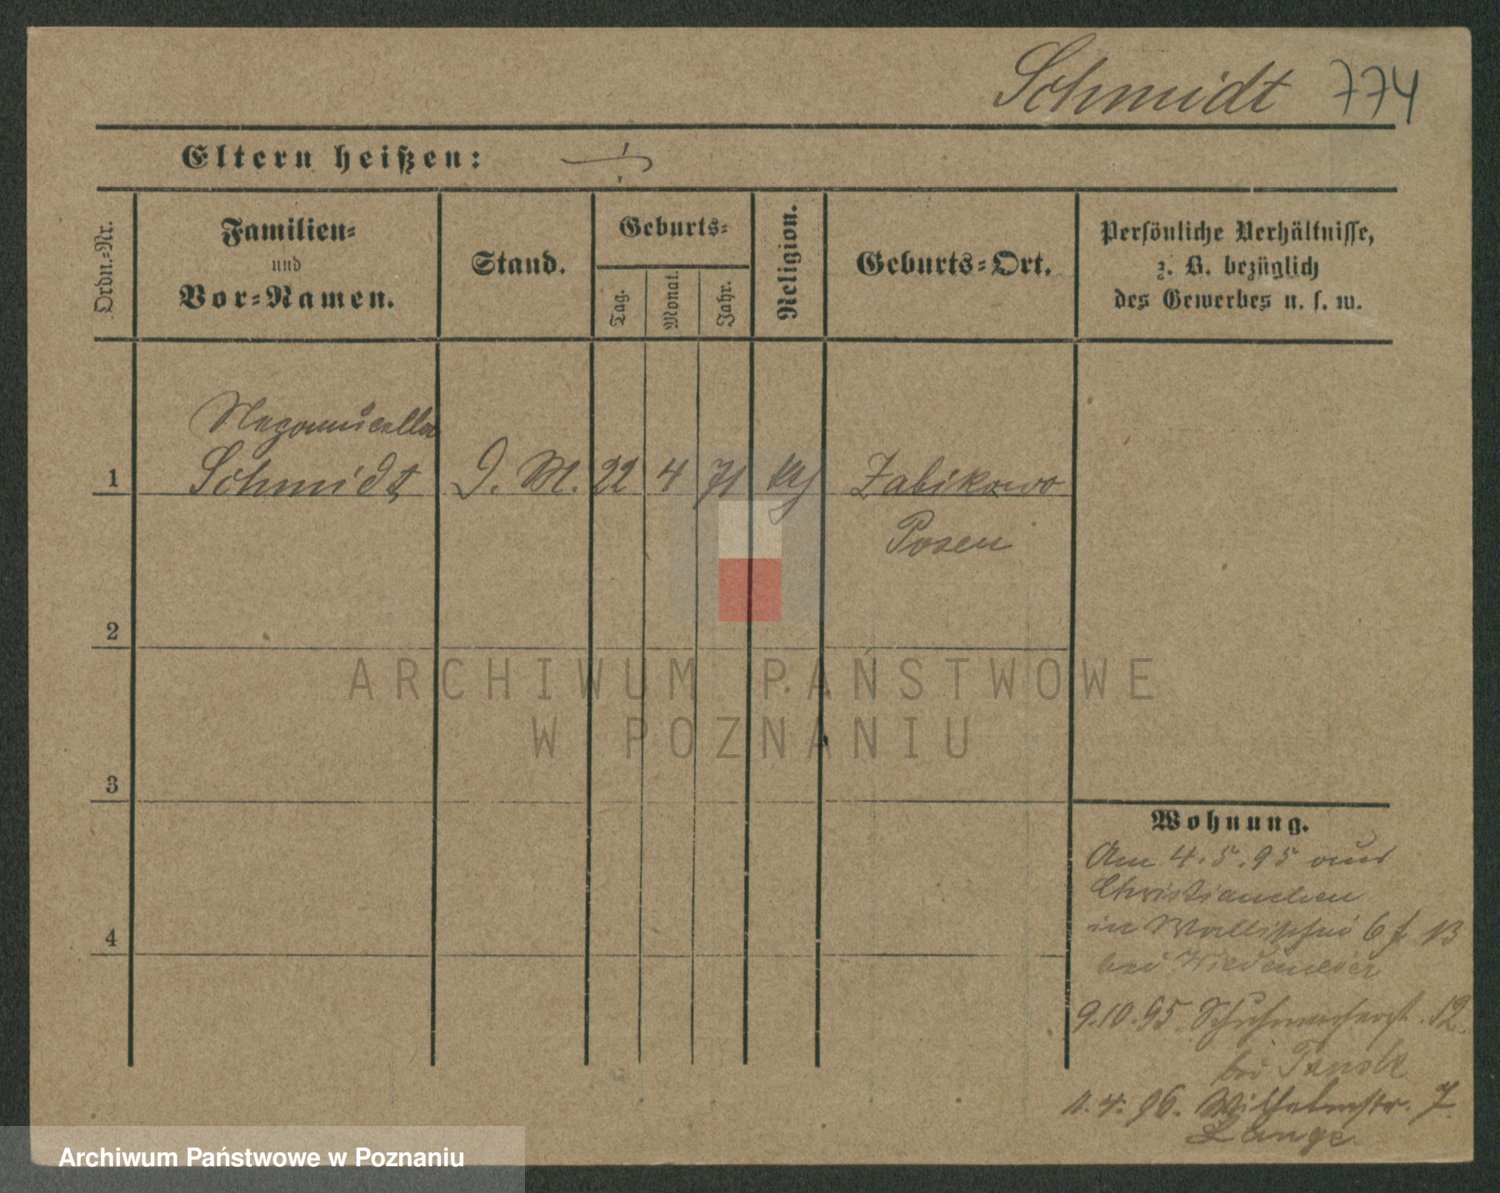 Schmidt 774
Eltern heißen: ÷
Ordn.-Nr.
Familien-
und
Vor-Namen.
Stand.
Geburts-
Tag.
Monat.
Jahr.
Religion.
Geburts-Ort.
Persönliche Verhältnisse,
z. B. bezüglich
des Gewerbes u. s. w.
1 Schmidt D. M. 22 4 71 Zabikowo
Posen
2
3
4
ARCHIWUM PAŃSTWOWE
W POZNANIU
Wohnung.
Am 4.5.95 aus
in Wallischei 6 f. 13
bei
9.10.95. Schuhmacherst. 12.
bei
11.4.96. Wilhelmstr. 7.
Lange
Archiwum Państwowe w Poznaniu